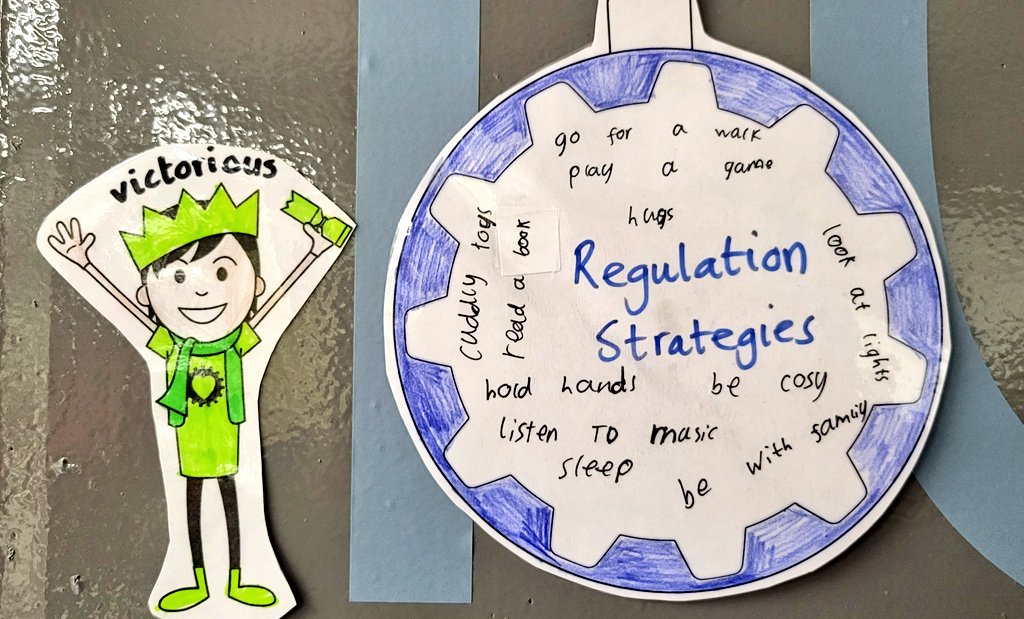 victorious
go for a walk
play a game
hugs
cuddly toys
read a book
Regulation
Strategies
look at lights
hold hands
be cosy
listen TO music
sleep
be with family